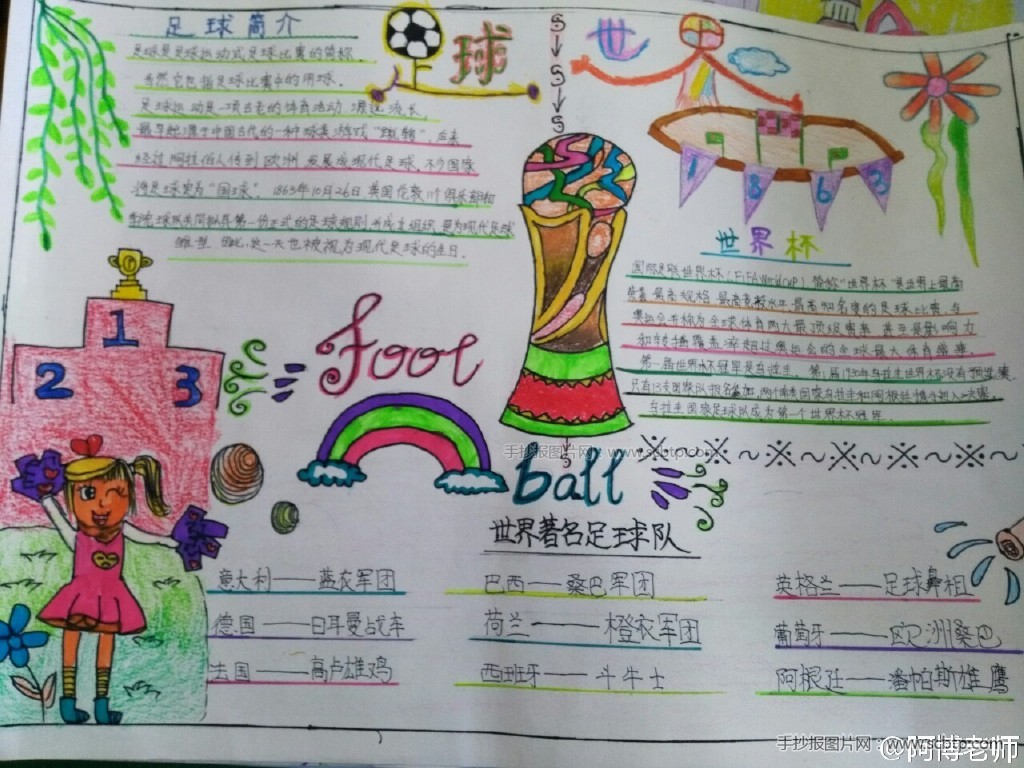 足球简介
足球是足球运动或足球比赛的简称.
当然它也指足球比赛中的用球.
足球运动是一项古老的体育活动,源远流长.
最早起源于中国古代的一种球类游戏"蹴鞠",后来
经过阿拉伯人传到欧洲,发展成现代足球.不少国家
将足球定为"国球". 1863年10月26日,英国伦敦11个俱乐部和
第一份正式的足球规则并成立组织,是为现代足球
雏型 因此,这一天也被视为现代足球的生日.
球
S
S
S
世
1 8 6 3
世界杯
国际足联世界杯(FIFA World Cup)简称"世界杯"是世界上最高
最高规格 最高竞技水平 最高知名度的足球比赛,与
奥运会并称为全球体育两大最顶级赛事,甚至是影响力
和转播覆盖率超过奥运会的全球最大体育盛事.
第一届世界杯冠军是乌拉圭, 第1届1930年乌拉圭世界杯没有预选赛,
只有13支球队报名参加,两个南美国家乌拉圭和阿根廷携手打入决赛,
乌拉圭国家足球队成为第一个世界杯冠军.
1
2 3
Foot
ball
S
手抄报图片网：www.scbtp.com
世界著名足球队
意大利——蓝衣军团
巴西——桑巴军团
英格兰——足球鼻祖
德国——日耳曼战车
荷兰——橙衣军团
葡萄牙——欧洲桑巴
法国——高卢雄鸡
西班牙——斗牛士
阿根廷——潘帕斯雄鹰
手抄报图片网：www.scbtp.com
@阿博老师